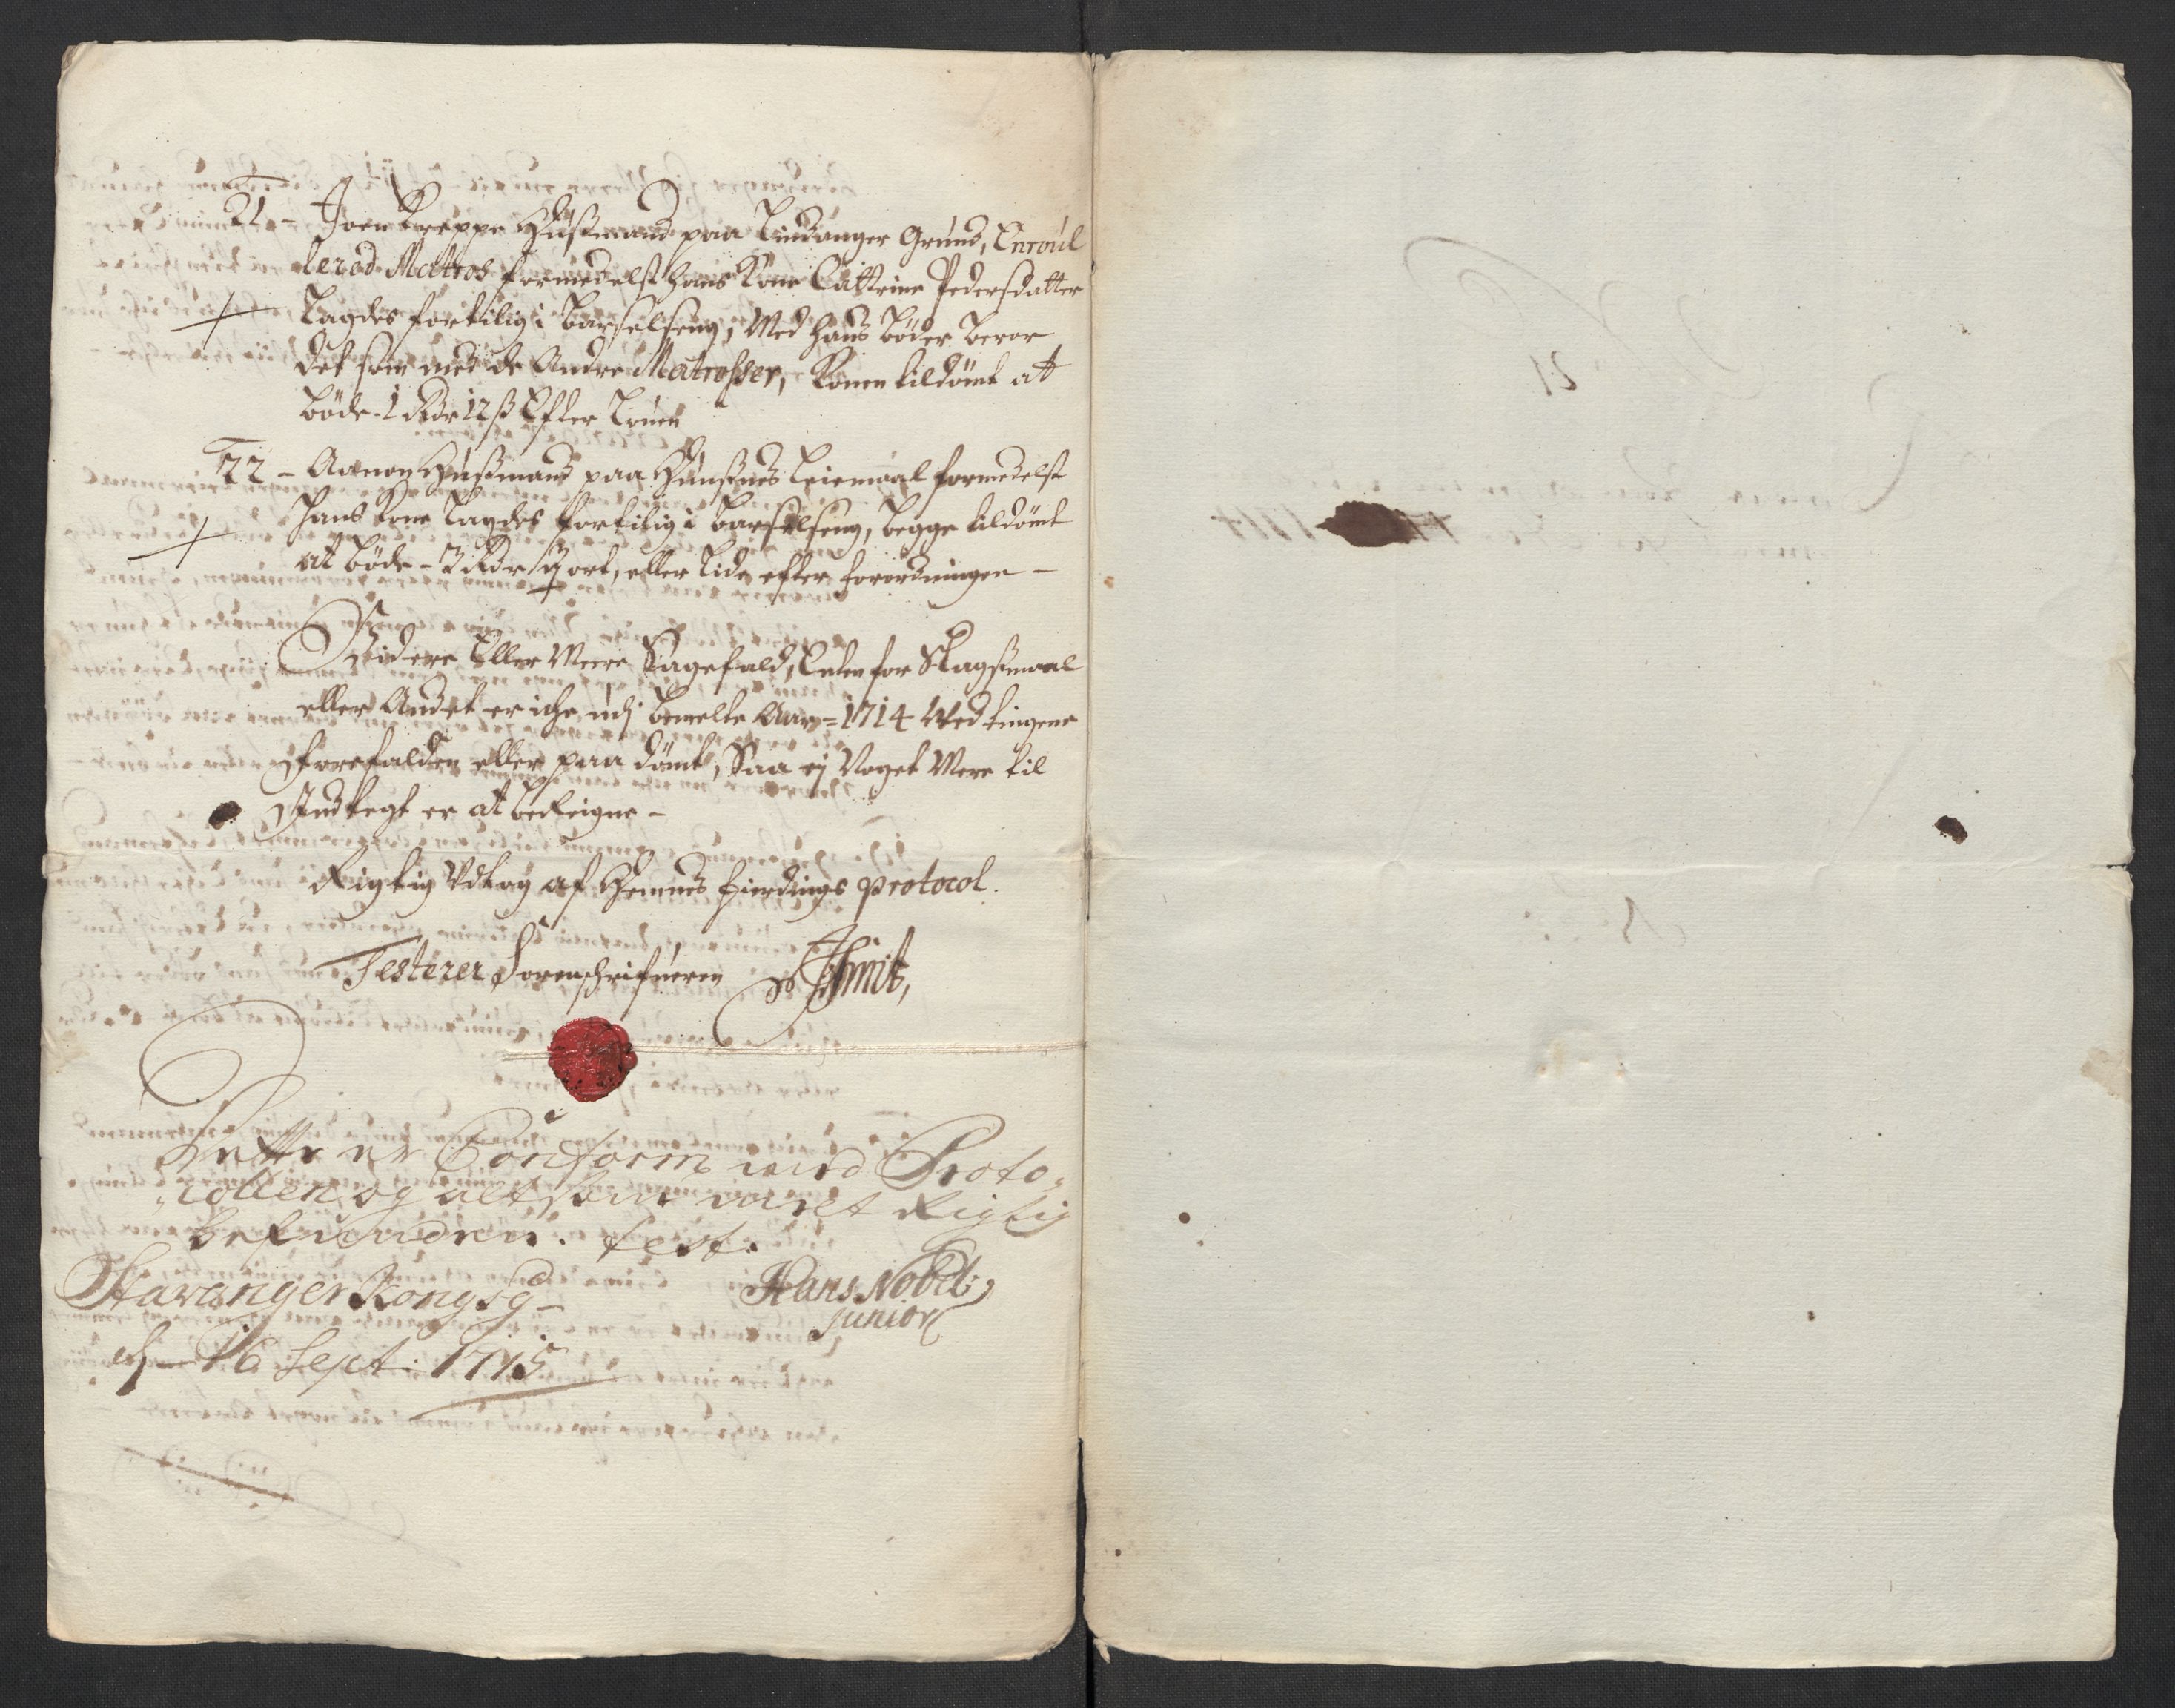 21 – Joen Treppe Huusmand paa Lindanger Grund, Enroul
lered Matros formedelst hans Kone Cattrine Pedersdatter
Lagdes fortilig i Barselseng, Med hans bøder beror
det som med de Andre Matrosser, Konen tildømt at
bøde 1 Rdr 12 ß Efter Loven
22 – Aanon Huusmand paa Leiemaal formedelst
hans Kone Lagdes fortilig i Barselseng, begge tildømt
at bøde – 3 Rdr ort, eller lide efter forordningen –
Videre Eller Meere Sagefald, Enten for Slagsmaal
eller Andet er iche udj bemelte Aar = 1714 Ved tingene
forefalden eller paa dømt, Saa ej Noget Mere til
Indtegt er at bereigne –
Rigtig Udtog af fierdings protocol.
Testerer Sorenschrifueren Smit,
Dette er Conform med Proto-
collen og alt som varet Rigtig
befunden. test.
Stavanger Kongsg –
Hans Nobel
junior
d 16 Sept: 1715